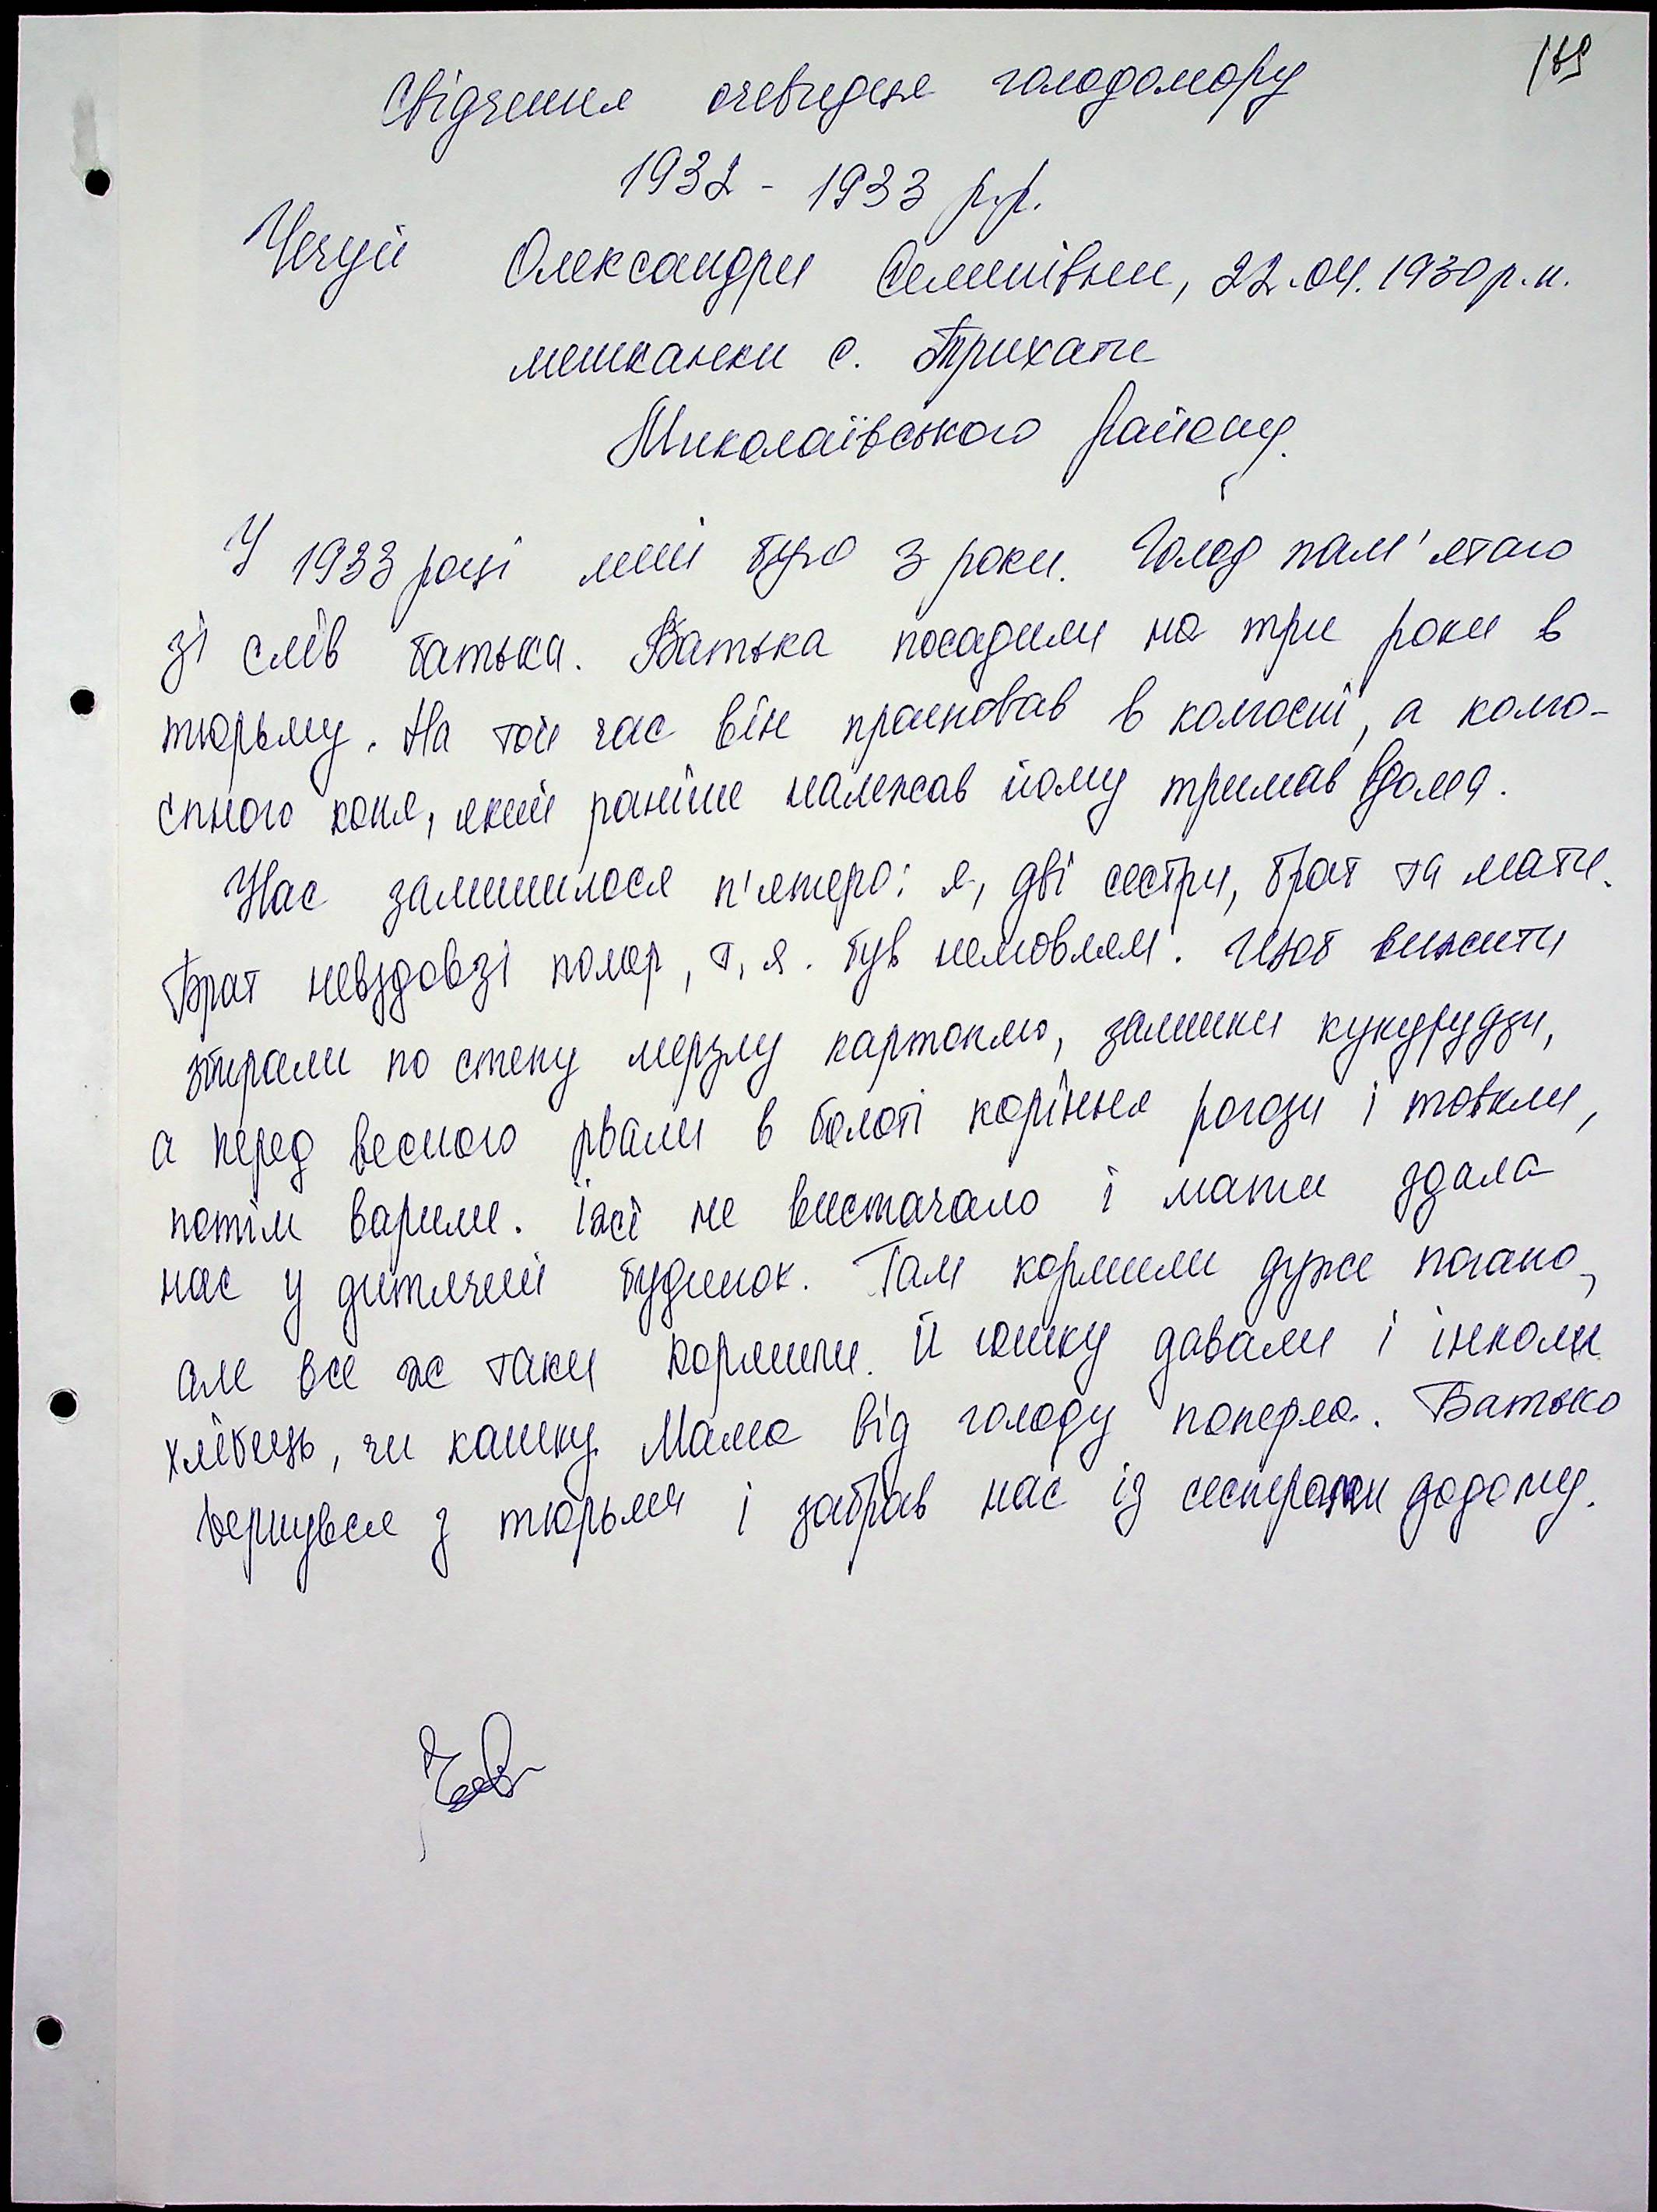 169
Свідчення очевидця голодомору
1932 - 1933 р.р.
Чечуй Олександри Семенівни, 22.04.1930 р.н.
мешканки с. Трихати
Миколаївського району.
У 1933 році мені було 3 роки. Голод пам'ятаю
зі слів батька. Батька посадили на три роки в
тюрьму. На той час він працював в колгоспі, а колго-
спного коня, який раніше належав йому тримав вдома.
Нас залишилося п'ятеро: я, дві сестри, брат та мати.
Брат невздовзі помер, т, я. був немовлям. Щоб вижити
збирали по степу мерзлу картоплю, залишки кукурудзи,
а перед весною рвали в болоті коріння рогози і товкли,
потім варили. Їжі не вистачало і мати здала
нас у дитячий будинок. Там кормили дуже погано,
але все ж таки кормили. Й юшку давали і інколи
хлібець, чи кашку. Мама від голоду померла. Батько
вернувся з тюрьми і забрав нас із сестрами додому.